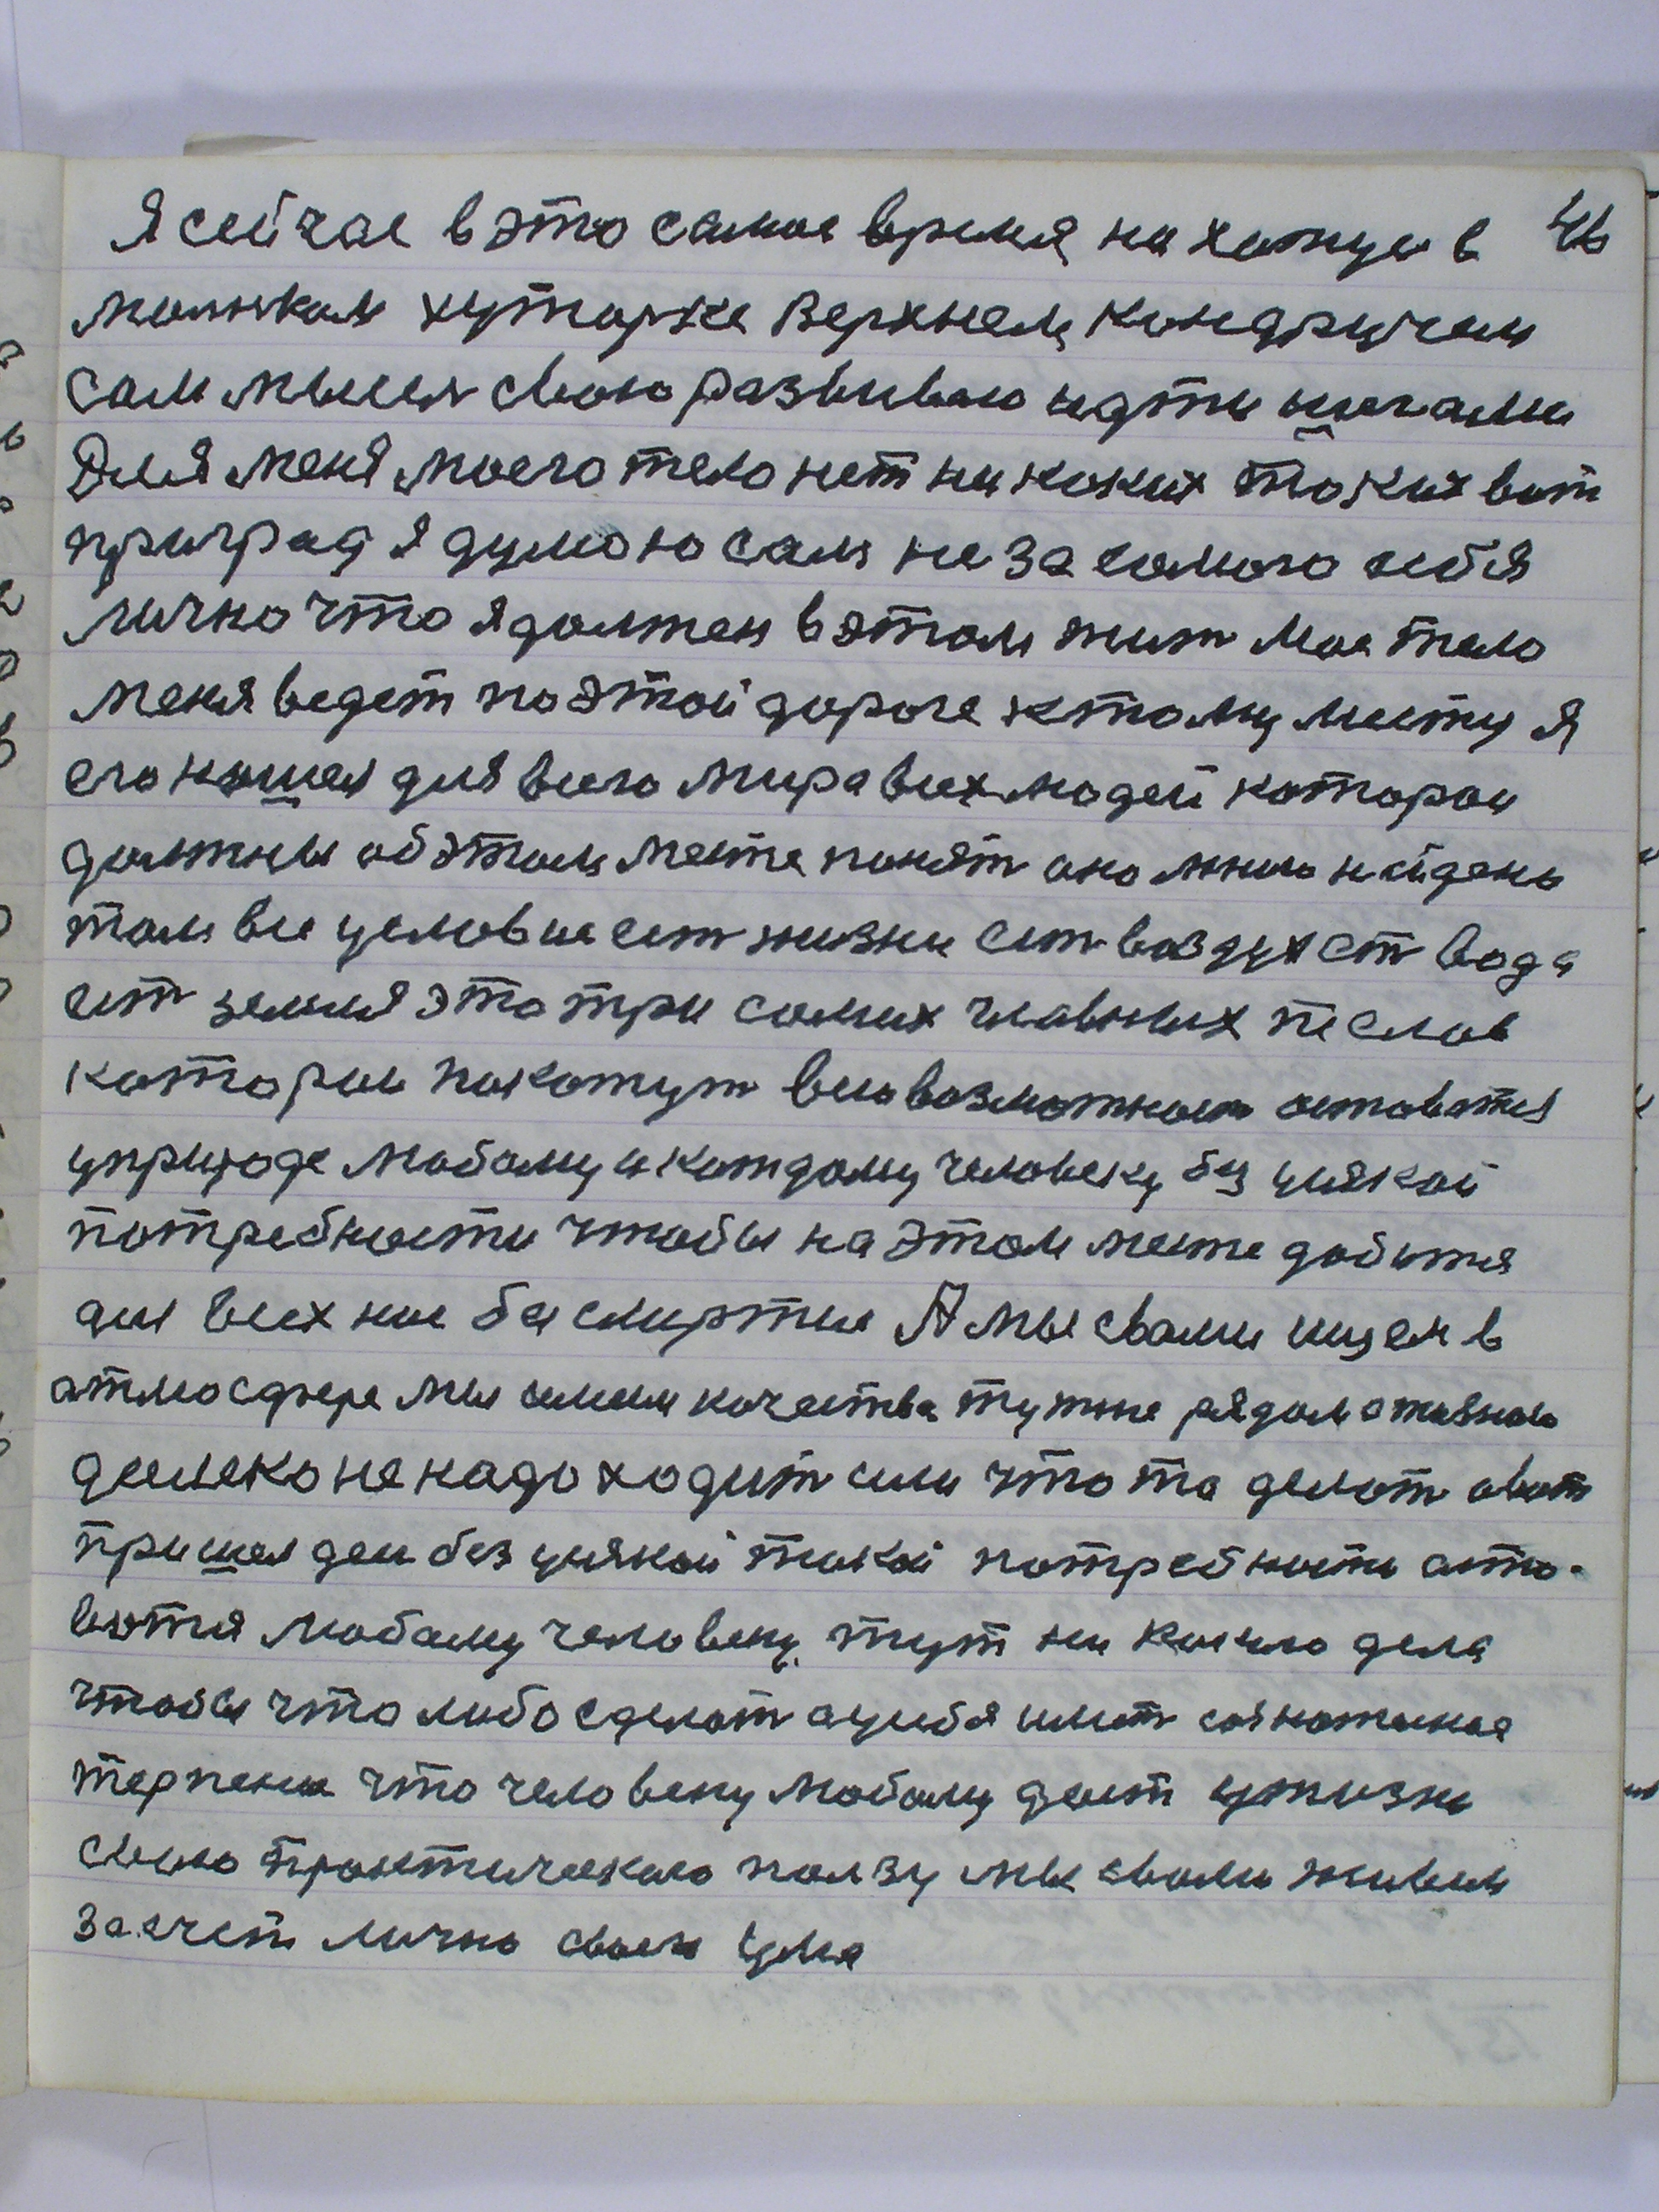 Я сейчас в это самое время нахожус в 46
маликом хуторке Верхнем Кондручем
сам мысля свою развиваю идти ногами
Для меня моего тело нет ни каких таких вот
приград я думаю сам не за самого себя
лично что я должен в этом жит Мое тело
меня ведет по этой дороге к тому месту я
его нашел для всего мира всех людей каторои
должны об этом месте понят оно мною найдено
там все условие ест жизни ест воздух ест вода
ест земля это три самих главних тела
каторои покажут всю возможност оставатся
у природе любому и каждому человеку без усякой
потребности чтобы на этом месте добится
для всех нас бесмиртия А мы свами ищем в
атмосфере мы имеем качества тут же рядом с тобою
далеко не надо ходит или что то делат а вот
пришел ден без усякой такой потребности аста-
ватся любому человеку тут ни какого дела
чтобы что либо сделат а у себя имет сознателная
терпения что человеку любому дает у жизни
свою практическаю ползу мы свами живем
за счет лично своего ума